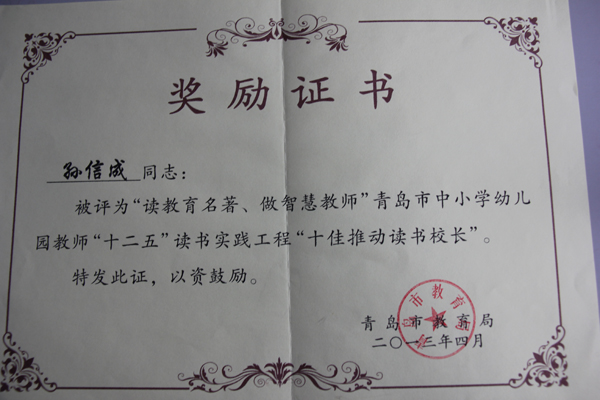 奖励证书
孙信成 同志：
被评为“读教育名著、做智慧教师”青岛市中小学幼儿
园教师“十二五”读书实践工程“十佳推动读书校长”。
特发此证，以资鼓励。
青岛市教育局
二〇一三年四月